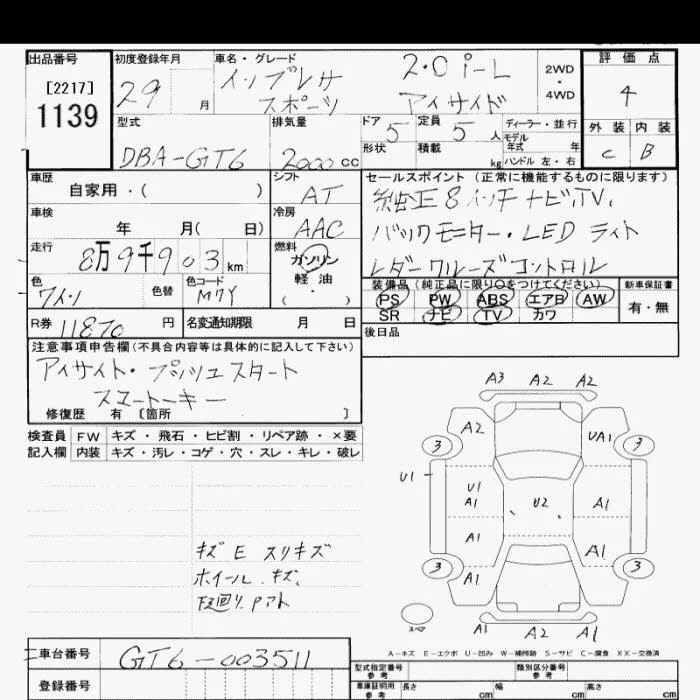 出品番号
[2217]
1139
初度登録年月
29 月
車名・グレード
インプレサ 2.0 i-L
スポーツ アイサイド
2WD
・
4WD
評価点
4
外装 内装
C B
型式
DBA-GT6
排気量
2000 cc
ドア 5
定員 5 人
ディーラー・並行
モデル
年式 年
形状
積載 kg
ハンドル 左・右
車歴
自家用・( )
シフト
AT
セールスポイント (正常に機能するものに限ります)
純正8インチナビ,TV,
バックモニター・LEDライト
レダークルーズコントロル
車検
年 月( 日)
冷房
AAC
走行
8万9千903 km
燃料
ガソリン
軽油
( ・ )
色
ワイン
色替
色コード
M7Y
装備品 (純正品に限り○をつけてください)
PS PW ABS エアB AW
SR ナビ TV カワ
新車保証書
有・無
R券 11870 円
名変通知期限 月 日
後日品
注意事項申告欄 (不具合内容等は具体的に記入して下さい)
アイサイト・プッシュスタート
スマートキー
修復歴 有 [箇所 ]
検査員 FW キズ・飛石・ヒビ割・リペア跡・×要
記入欄 内装 キズ・汚レ・コゲ・穴・スレ・キレ・破レ
キズ E スリキズ
ホイール.キズ,
下廻り.Pアト
A3 A2 A2
A2 UA1
3 3
U1
U1
A1 U2 A1
A1 A1
3 A1 3
A1 A2 A1
スペア
A-キズ E-エクボ U-凹み W-補修跡 S-サビ C-腐食 XX-交換済
車台番号
GT6-003511
登録番号
型式指定番号
参考
類別区分番号
参考
車庫証明用
参考
長さ cm
幅 cm
高さ cm